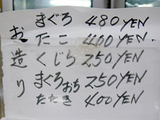 お造り
まぐろ 480YEN
たこ 400YEN.
くじら 250YEN
まぐろおち 250YEN
たたき 400YEN